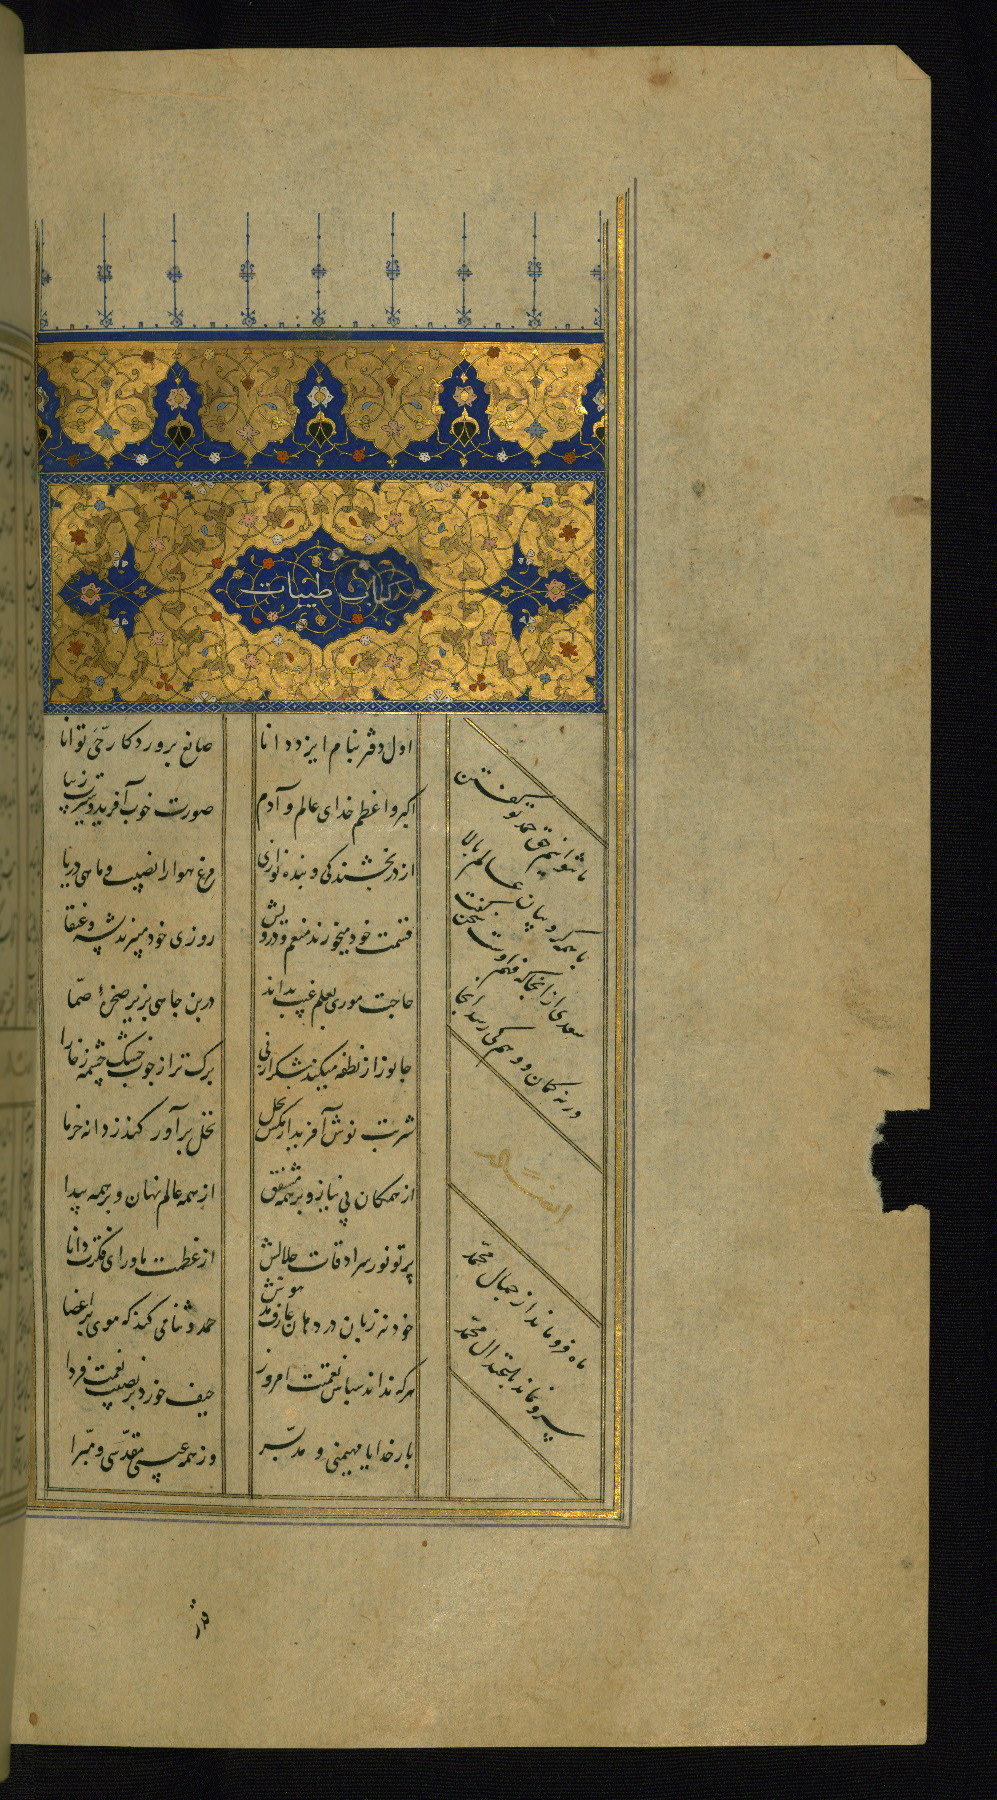 کتاب طیبات
اول دفتر بنام ایزد دانا
صانع پروردگار حی توانا
اکبر و اعظم خدای عالم و آدم
صورت خوب آفرید و سیرت زیبا
از در بخشندگی و بنده نوازی
مرغ هوا را نصیب و ماهی دریا
قسمت خود میخورند منعم و درویش
روزی خود میبرند پشه و عنقا
حاجت موری بعلم غیب بداند
در بن چاهی بزیر صخرهٔ صما
جانور از نطفه میکند شکر از نی
برگ تر از چوب خشک و چشمه ز خارا
شربت نوش آفرید از مگس نحل
نخل برآور کند ز دانه خرما
از همگان بی نیاز و بر همه مشفق
از همه عالم نهان و بر همه پیدا
پرتو نور سرادقات جلالش
از عظمت ماورای فکرت دانا
خود نه زبان در دهان عارف مدهوش
حمد و ثنا می کند که موی بر اعضا
هر که نداند سپاس نعمت امروز
حیف خورد بر نصیب نعمت فردا
بار خدایا مهیمنی و مدبر
وز همه عیبی مقدسی و مبرا
ما نتوانیم حق حمد تو گفتن
با همه کروبیان عالم بالا
سعدی از انجا که فهم اوست سخن گفت
ورنه کمان و وهم کی رسد انجا
ماه فرو ماند از جمال محمد
سرو نماند باعتدال محمد